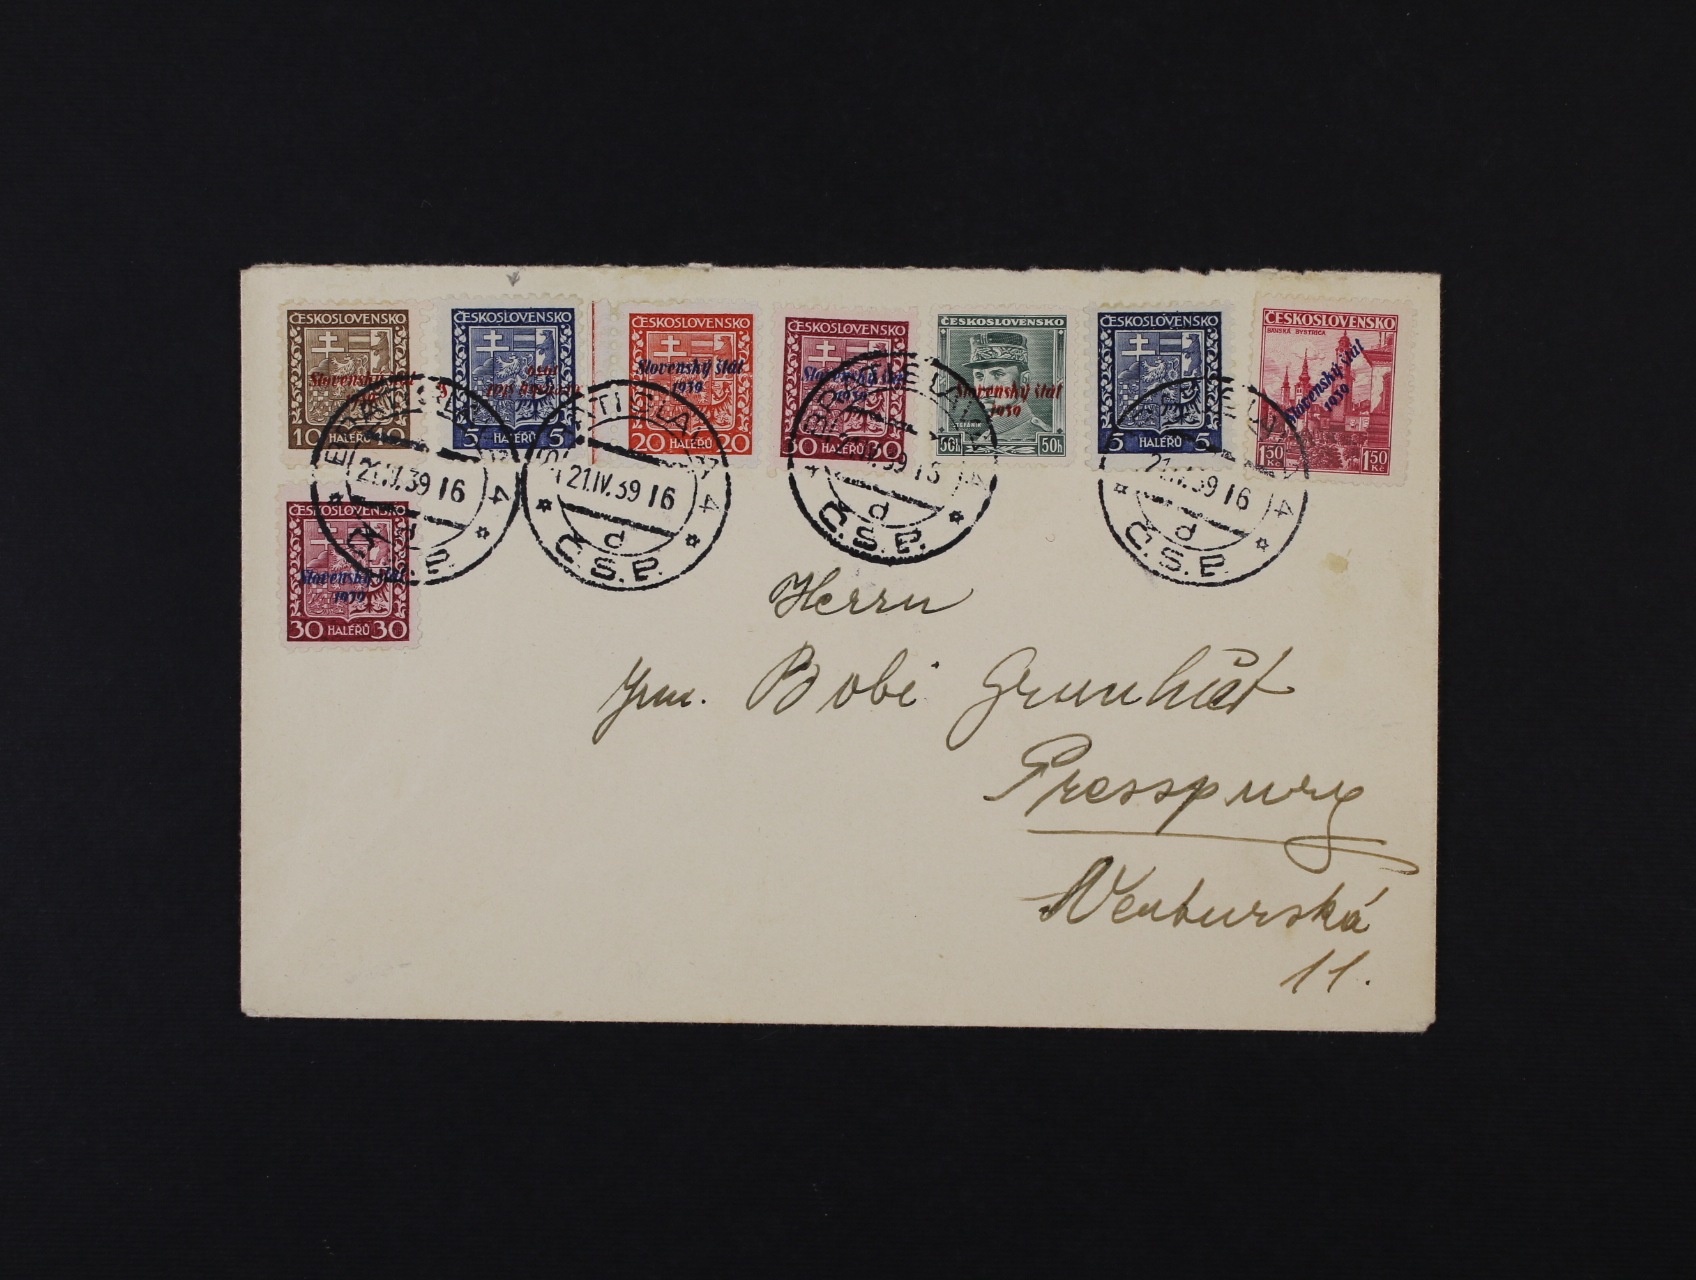 ČESKOSLOVENSKO
Slovenský štát
10 HALÉŘŮ 10
ČESKOSLOVENSKO
5 HALÉŘŮ 5
ČESKOSLOVENSKO
Slovenský štát
1939
20 HALÉŘŮ 20
ČESKOSLOVENSKO
Slovenský štát
1939
30 HALÉŘŮ 30
ČESKOSLOVENSKO
Slovenský štát
1939
ŠTEFÁNIK
50h 50h
ČESKOSLOVENSKO
5 HALÉŘŮ 5
ČESKOSLOVENSKO
BAŇSKÁ BYSTRICA
Slovenský štát
1939
1.50 Kč 1.50 Kč
BRATISLAVA 4
21.IV.39 16
Č.S.P.
BRATISLAVA 4
21.IV.39 16
d
Č.S.P.
BRATISLAVA 4
21.IV.39 16
d
Č.S.P.
BRATISLAVA 4
21.IV.39 16
d
Č.S.P.
ČESKOSLOVENSKO
Slovenský štát
1939
30 HALÉŘŮ 30
Herrn
Bobi Grunhut
Presspurg
Venturská
11.